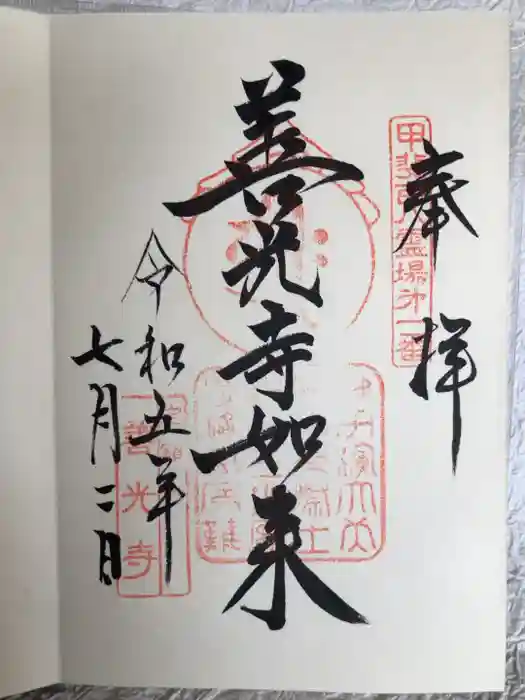 奉拝
甲斐百八霊場第一番
善光寺如来
令和五年
七月二日
善光寺